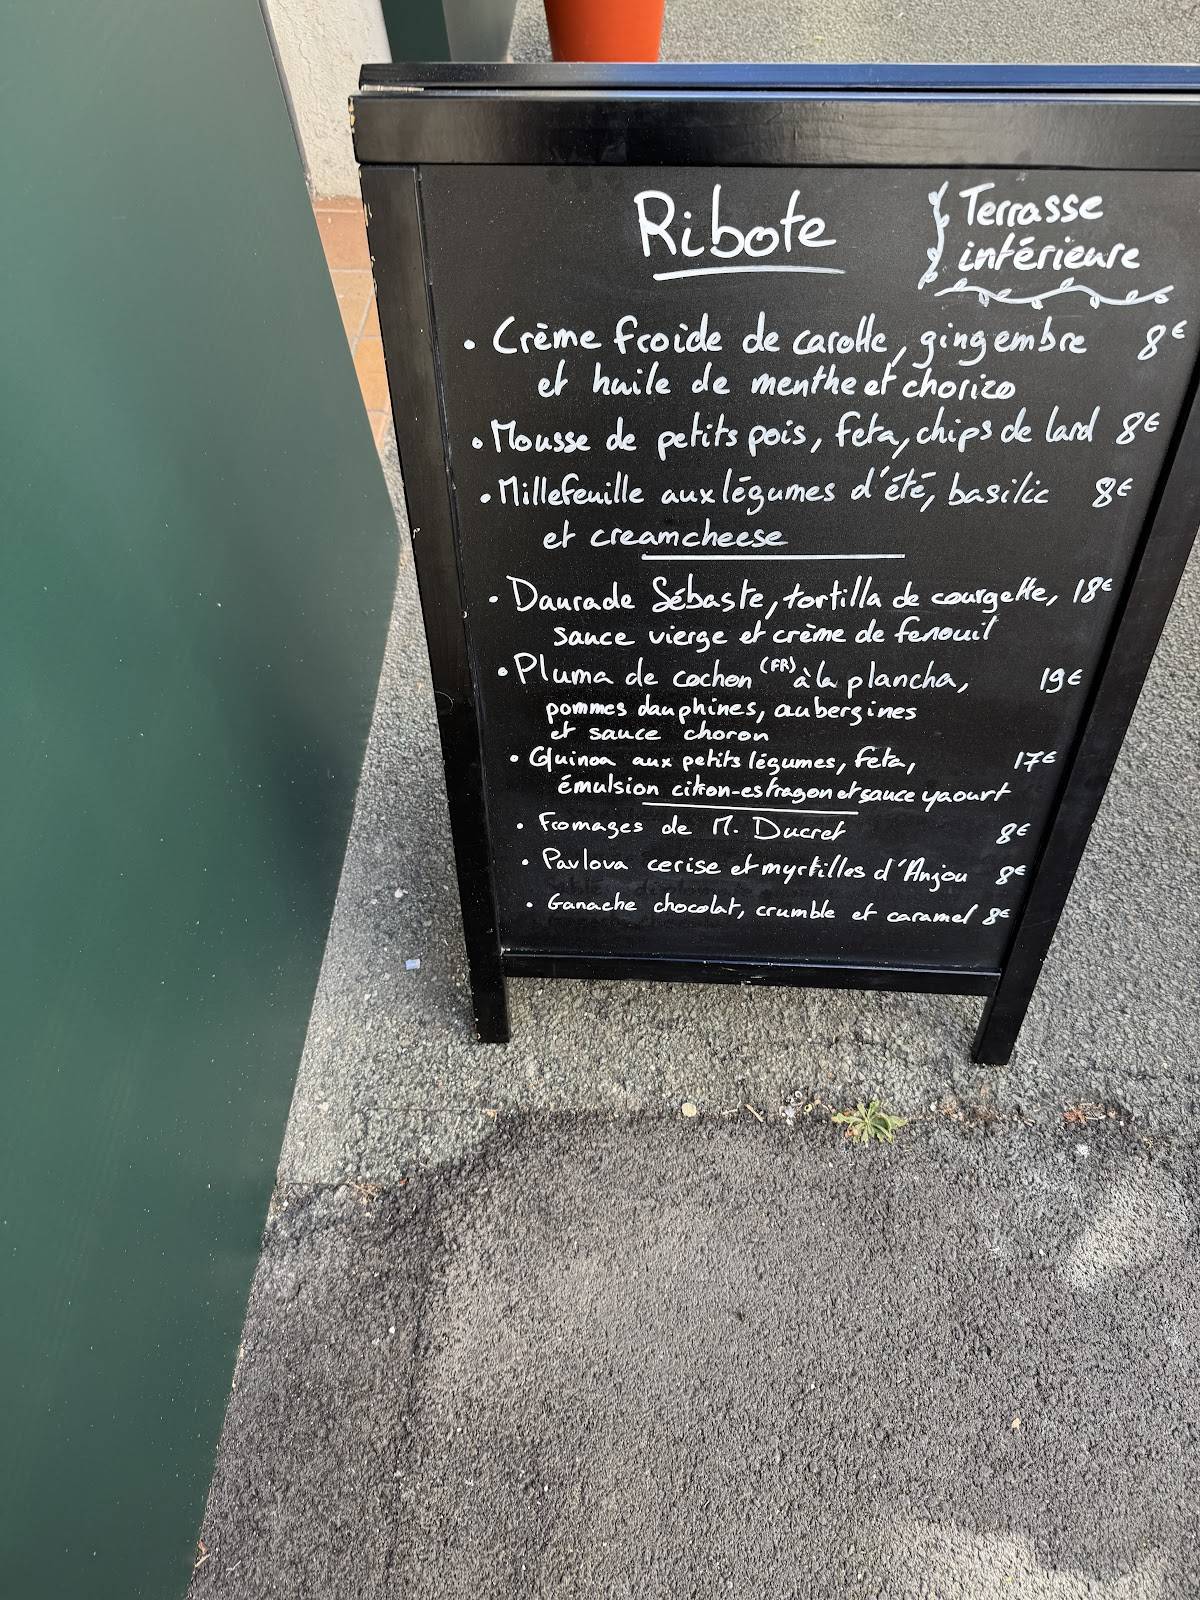 Ribote
Terrasse
intérieure
• Crème froide de carotte, gingembre 8€
et huile de menthe et chorizo
• Mousse de petits pois, feta, chips de lard 8€
• Millefeuille aux légumes d'été, basilic 8€
et creamcheese
• Daurade Sébaste, tortilla de courgette, 18€
sauce vierge et crème de fenouil
• Pluma de cochon (FR) à la plancha, 19€
pommes dauphines, aubergines
et sauce choron
• Quinoa aux petits légumes, feta, 17€
émulsion citron-estragon et sauce yaourt
• Fromages de M. Ducret 8€
• Pavlova cerise et myrtilles d'Anjou 8€
• Ganache chocolat, crumble et caramel 8€